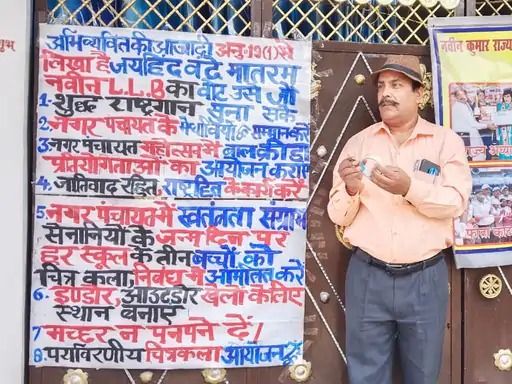 अभिव्यक्ति की आजादी अनु० 19(1) से
लिखा है जयहिंद वंदे मातरम
नवीन L.L.B का वोट उसे जो
1. शुद्ध राष्ट्रगान सुना सके
2. नगर पंचायत के मेधावियों का सम्मान करें
3. नगर पंचायत महोत्सव में बाल क्रीडा
प्रतियोगताओं का आयोजन कराए
4. जातिवाद रहित, राष्ट्रहित के कार्य करें
5. नगर पंचायत में स्वतंत्रता संग्राम
सेनानियों के जन्म दिन पर
हर स्कूल के तीन बच्चों को
चित्र कला, निबंध में आमंत्रित करें
6. इण्डोर, आउटडोर खेलो के लिए
स्थान बनाए
7 मच्छर न पनपने दें।
8. पर्यावरणीय चित्रकला आयोजन
नवीन कुमार राज्य